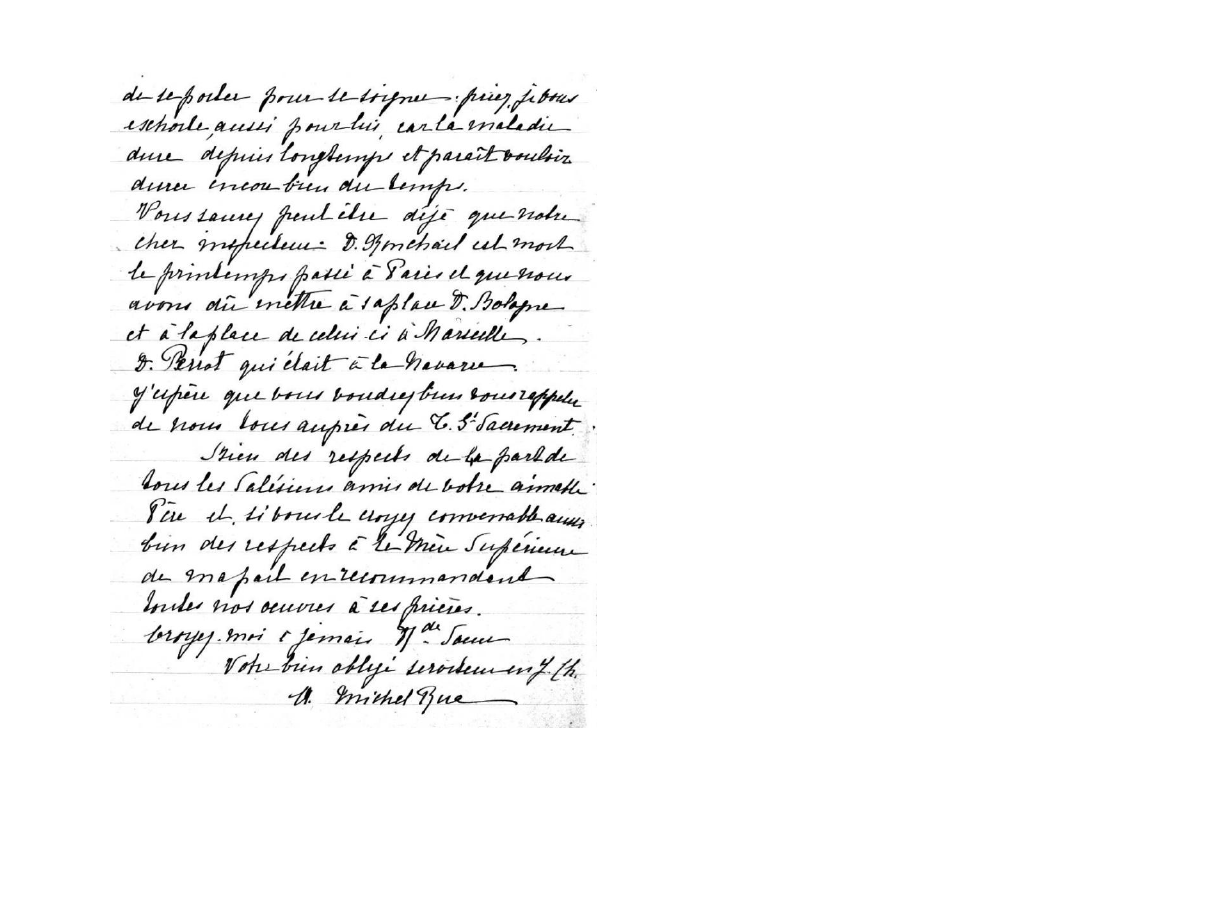 de se porter pour se soigner. priez, je vous
exhorte, aussi pour lui, car la maladie
dure depuis longtemps et paraît vouloir
durer encore bien du temps.
Vous saurez peut être déjà que notre
cher inspecteur D. Ronchail est mort
le printemps passé à Paris et que nous
avons dû mettre à sa place D. Bologne
et à la place de celui ci à Marseille.
D. Perrot qui était à la Navarre.
J'espère que vous voudrez bien vous rappeler
de nous tous auprès du T. St Sacrement.
Bien des respects de la part de
tous les Salésiens amis de votre aimable
Père et, si vous le croyez convenable aussi
bien des respects à la Mère Supérieure
de ma part en recommandant
toutes nos oeuvres à ses prières.
Croyez-moi à jamais Rde Soeur
Votre bien obligé serviteur en J. Ch.
A. Michel Rua